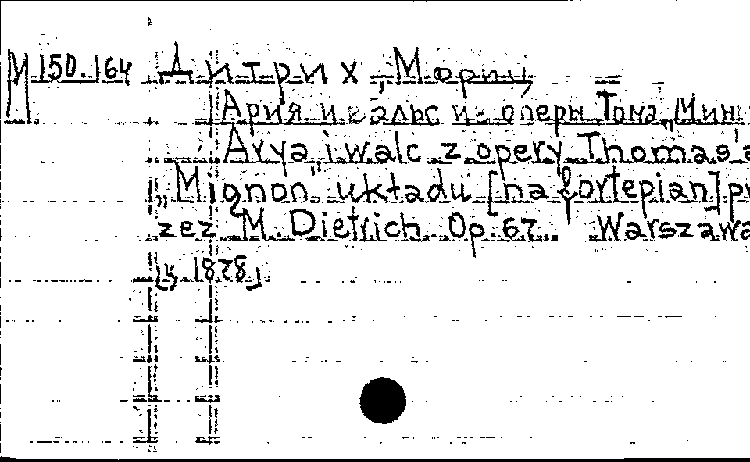 М 150.164 Дитрих, Мориц
Ария и вальс из оперы Тома „Мин
Arya i walc z opery Thomas'a
„Mignon" układu [na fortepian] pr
zez M. Dietrich. Op. 67. Warszawa
1878